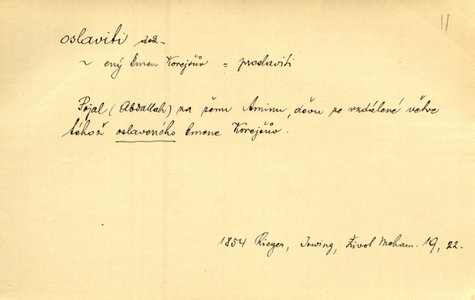 11
oslaviti dok.
~ ený kmen Korejšův = proslaviti
Pojal (Abdallah) za ženu Aminu, děvu ze vzdálené větve
téhož oslaveného kmene Korejšův.
1854 Rieger, Irwing, Život Moham. 19, 22.